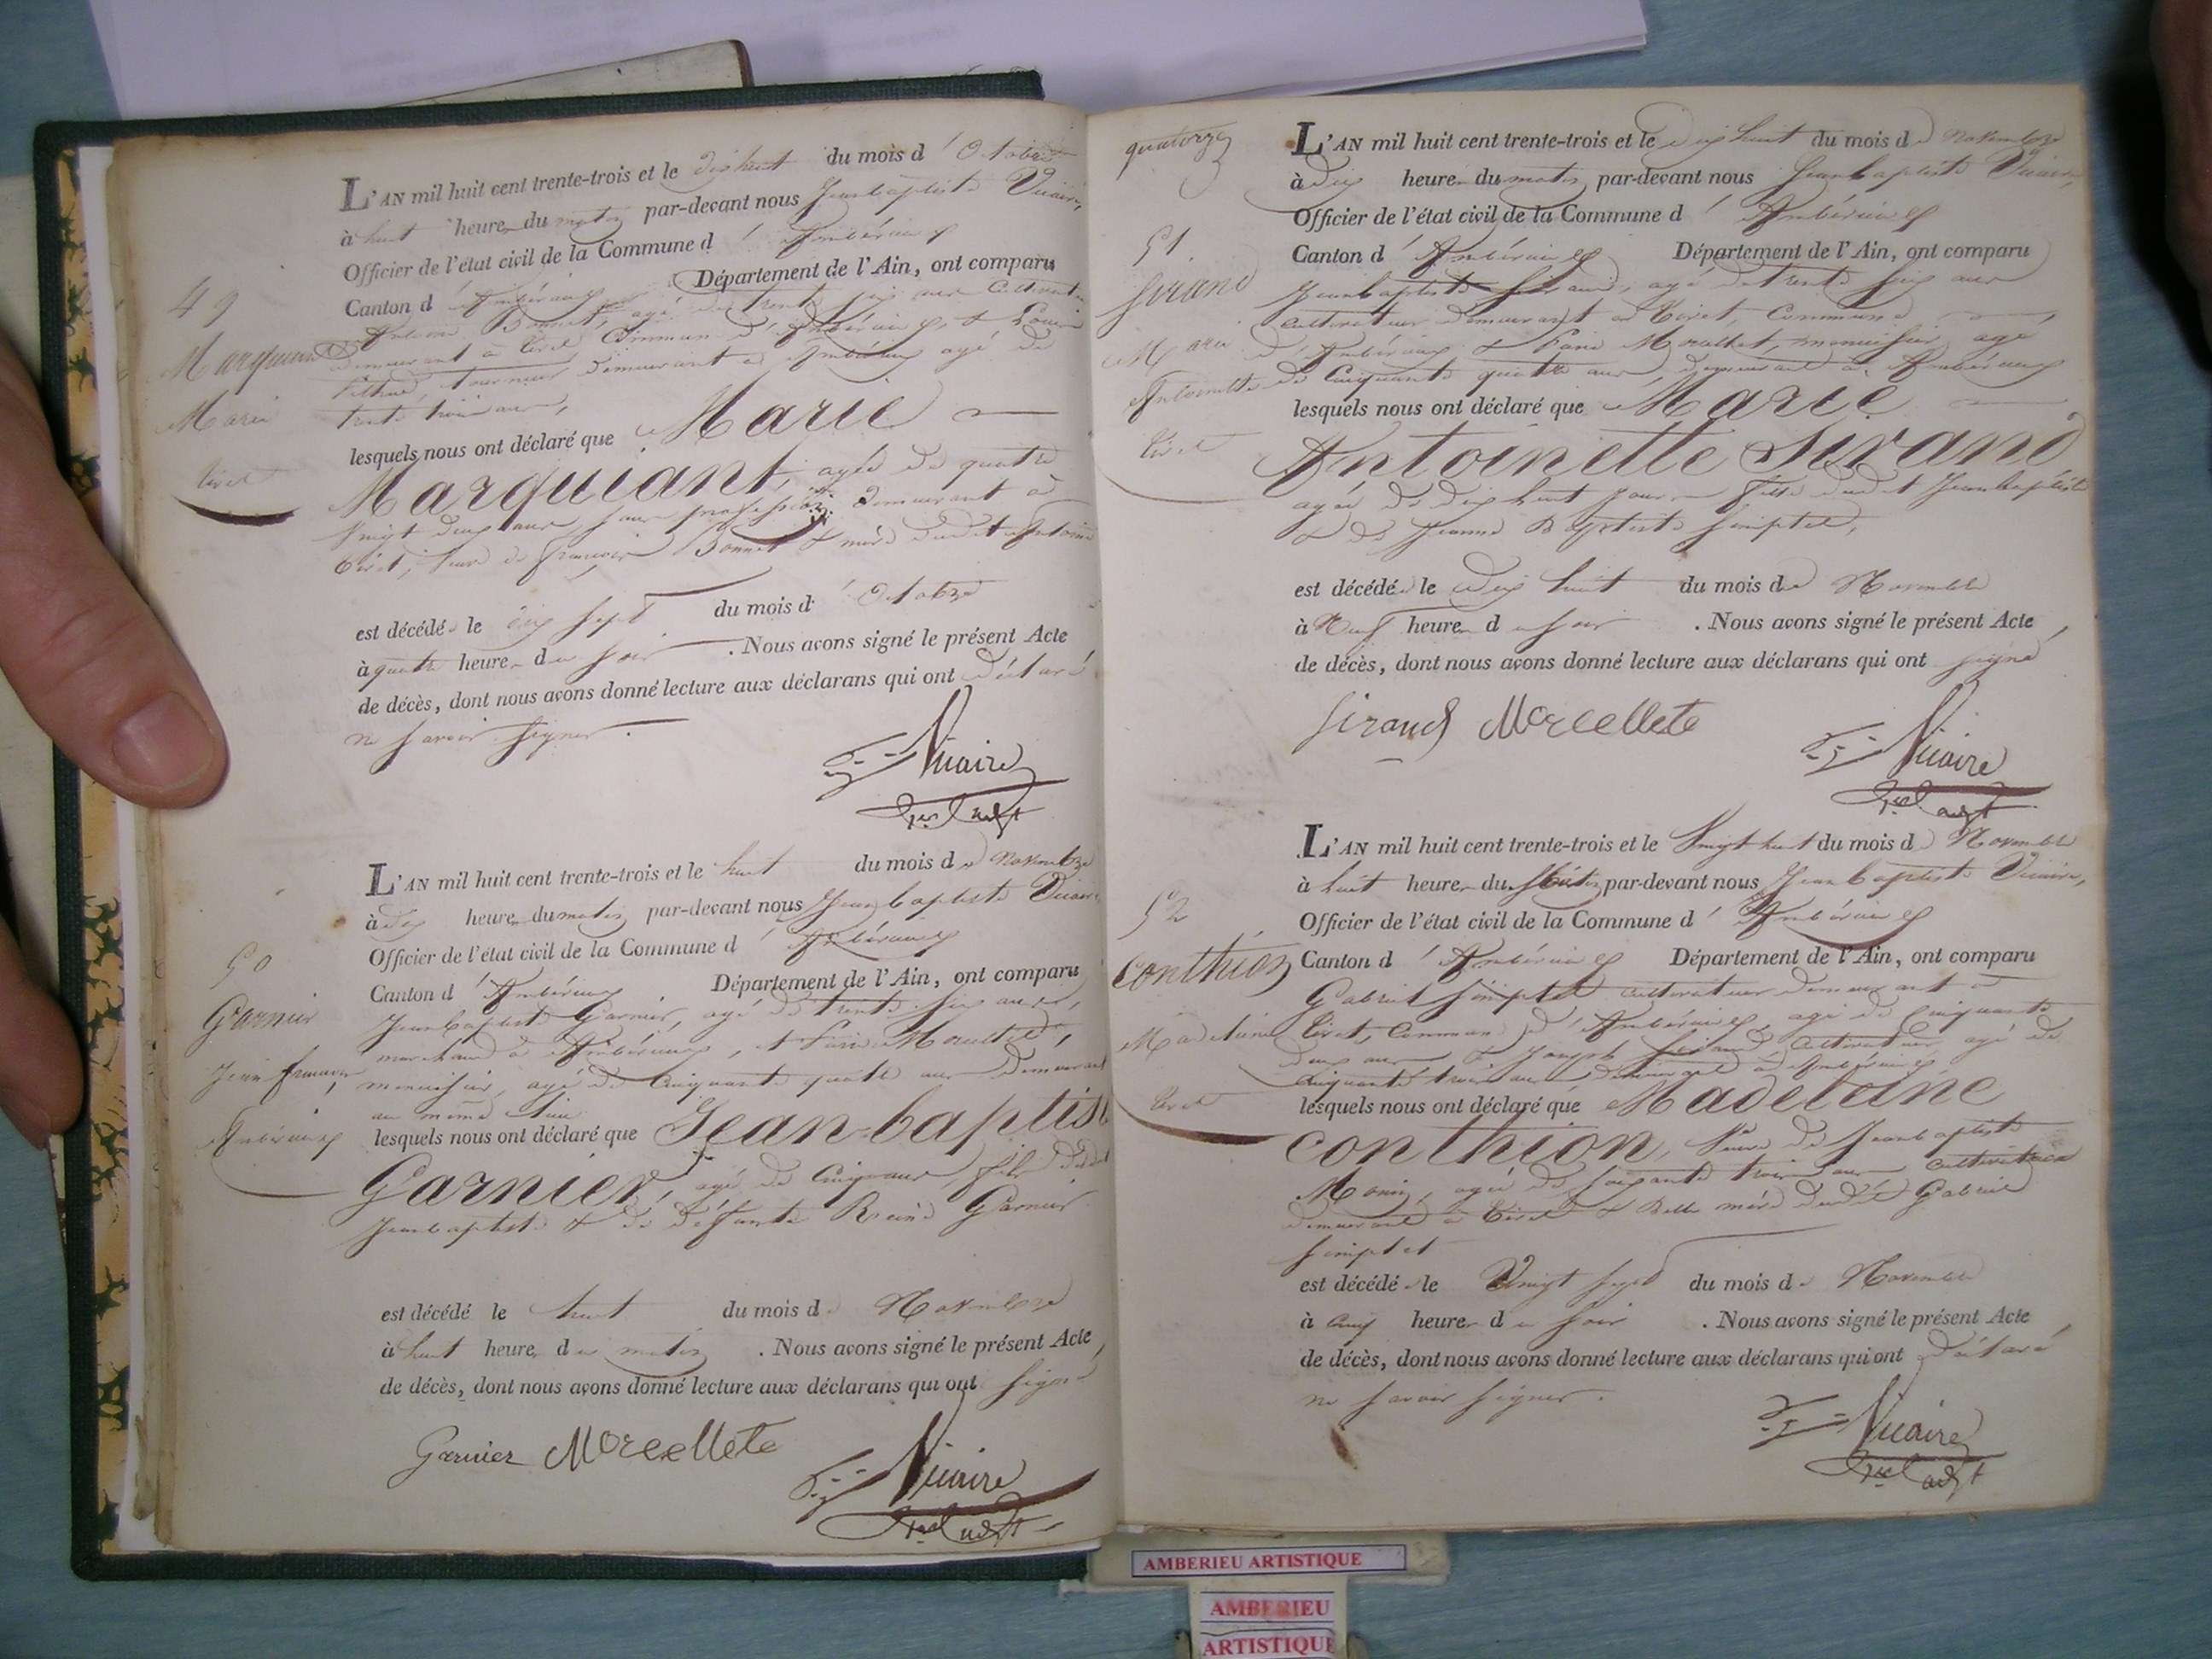 49
Marquiant
Marie
tiret
L'AN mil huit cent trente-trois et le dix huit du mois d'Octobre
à huit heures du matin par-devant nous Jean baptiste Vicaire,
Officier de l'état civil de la Commune d'Ambérieux
Canton d'Ambérieux Département de l'Ain, ont comparu
Antoine Bonnet, agé de trente six ans Cultivateur
demeurant à tiret Commune d'Ambérieux, & Louis
tournier demeurant à Ambérieux agé de
trente trois ans,
lesquels nous ont déclaré que Marie
Marquiant, agée de quatre
vingt deux ans, sans profession demeurant à
tiret, veuve de françois Bonnet & mère dudit Antoine
est décédée le dix sept du mois d'Octobre
à quatre heures du soir. Nous avons signé le présent Acte
de décès, dont nous avons donné lecture aux déclarans qui ont déclaré
ne savoir signer.
Vicaire
50
Garnier
Jean françois
Ambérieux
L'AN mil huit cent trente-trois et le huit du mois de Novembre
à dix heures du matin par-devant nous Jean baptiste Vicaire
Officier de l'état civil de la Commune d'Ambérieux
Canton d'Ambérieux Département de l'Ain, ont comparu
Jean baptiste Garnier, agé de trente six ans,
marchand à Ambérieux, et
menuisier, agé de Cinquante quatre ans demeurant
au même lieu
lesquels nous ont déclaré que Jean-baptiste
Garnier, agé de Cinq ans, fils dudit
Jean baptiste & de défunte Reine Garnier
est décédé le huit du mois de Novembre
à huit heures du matin. Nous avons signé le présent Acte,
de décès, dont nous avons donné lecture aux déclarans qui ont signé
Garnier Morcellete
Vicaire
quatorze
51
Sirand
Marie
Antoinette
tiret
L'AN mil huit cent trente-trois et le dix huit du mois de Novembre
à dix heures du matin par-devant nous Jean baptiste Vicaire,
Officier de l'état civil de la Commune d'Ambérieux
Canton d'Ambérieux Département de l'Ain, ont comparu
Jean baptiste Sirand, agé de trente six ans
cultivateur demeurant à tiret, Commune
d'Ambérieux & menuisier agé
de Cinquante quatre ans, demeurant à Ambérieux
lesquels nous ont déclaré que Marie
Antoinette Sirand
agée de dix huit jours fille dudit Jean baptiste
& de Jeanne Baptiste Simptet,
est décédée le dix huit du mois de Novembre
à Neuf heures du soir. Nous avons signé le présent Acte,
de décès, dont nous avons donné lecture aux déclarans qui ont signé
Sirand Morcellete
Vicaire
52
Conthion
Madelaine
tiret
L'AN mil huit cent trente-trois et le Vingt huit du mois de Novembre
à huit heures du Matin par-devant nous Jean baptiste Vicaire,
Officier de l'état civil de la Commune d'Ambérieux
Canton d'Ambérieux Département de l'Ain, ont comparu
Gabriel Simptet cultivateur demeurant à
tiret, Commune d'Ambérieux, agé de Cinquante
deux ans & Joseph Sirand Cultivateur agé de
Cinquante trois ans, demeurant à Ambérieux
lesquels nous ont déclaré que Madelaine
Conthion, Veuve de Jean baptiste
agée de soixante trois ans cultivatrice
demeurant à tiret & Belle mère dudit Gabriel
Simptet
est décédée le Vingt sept du mois de Novembre
à cinq heures du soir. Nous avons signé le présent Acte
de décès, dont nous avons donné lecture aux déclarans qui ont déclaré
ne savoir signer.
Vicaire
AMBERIEU ARTISTIQUE
AMBERIEU
ARTISTIQUE